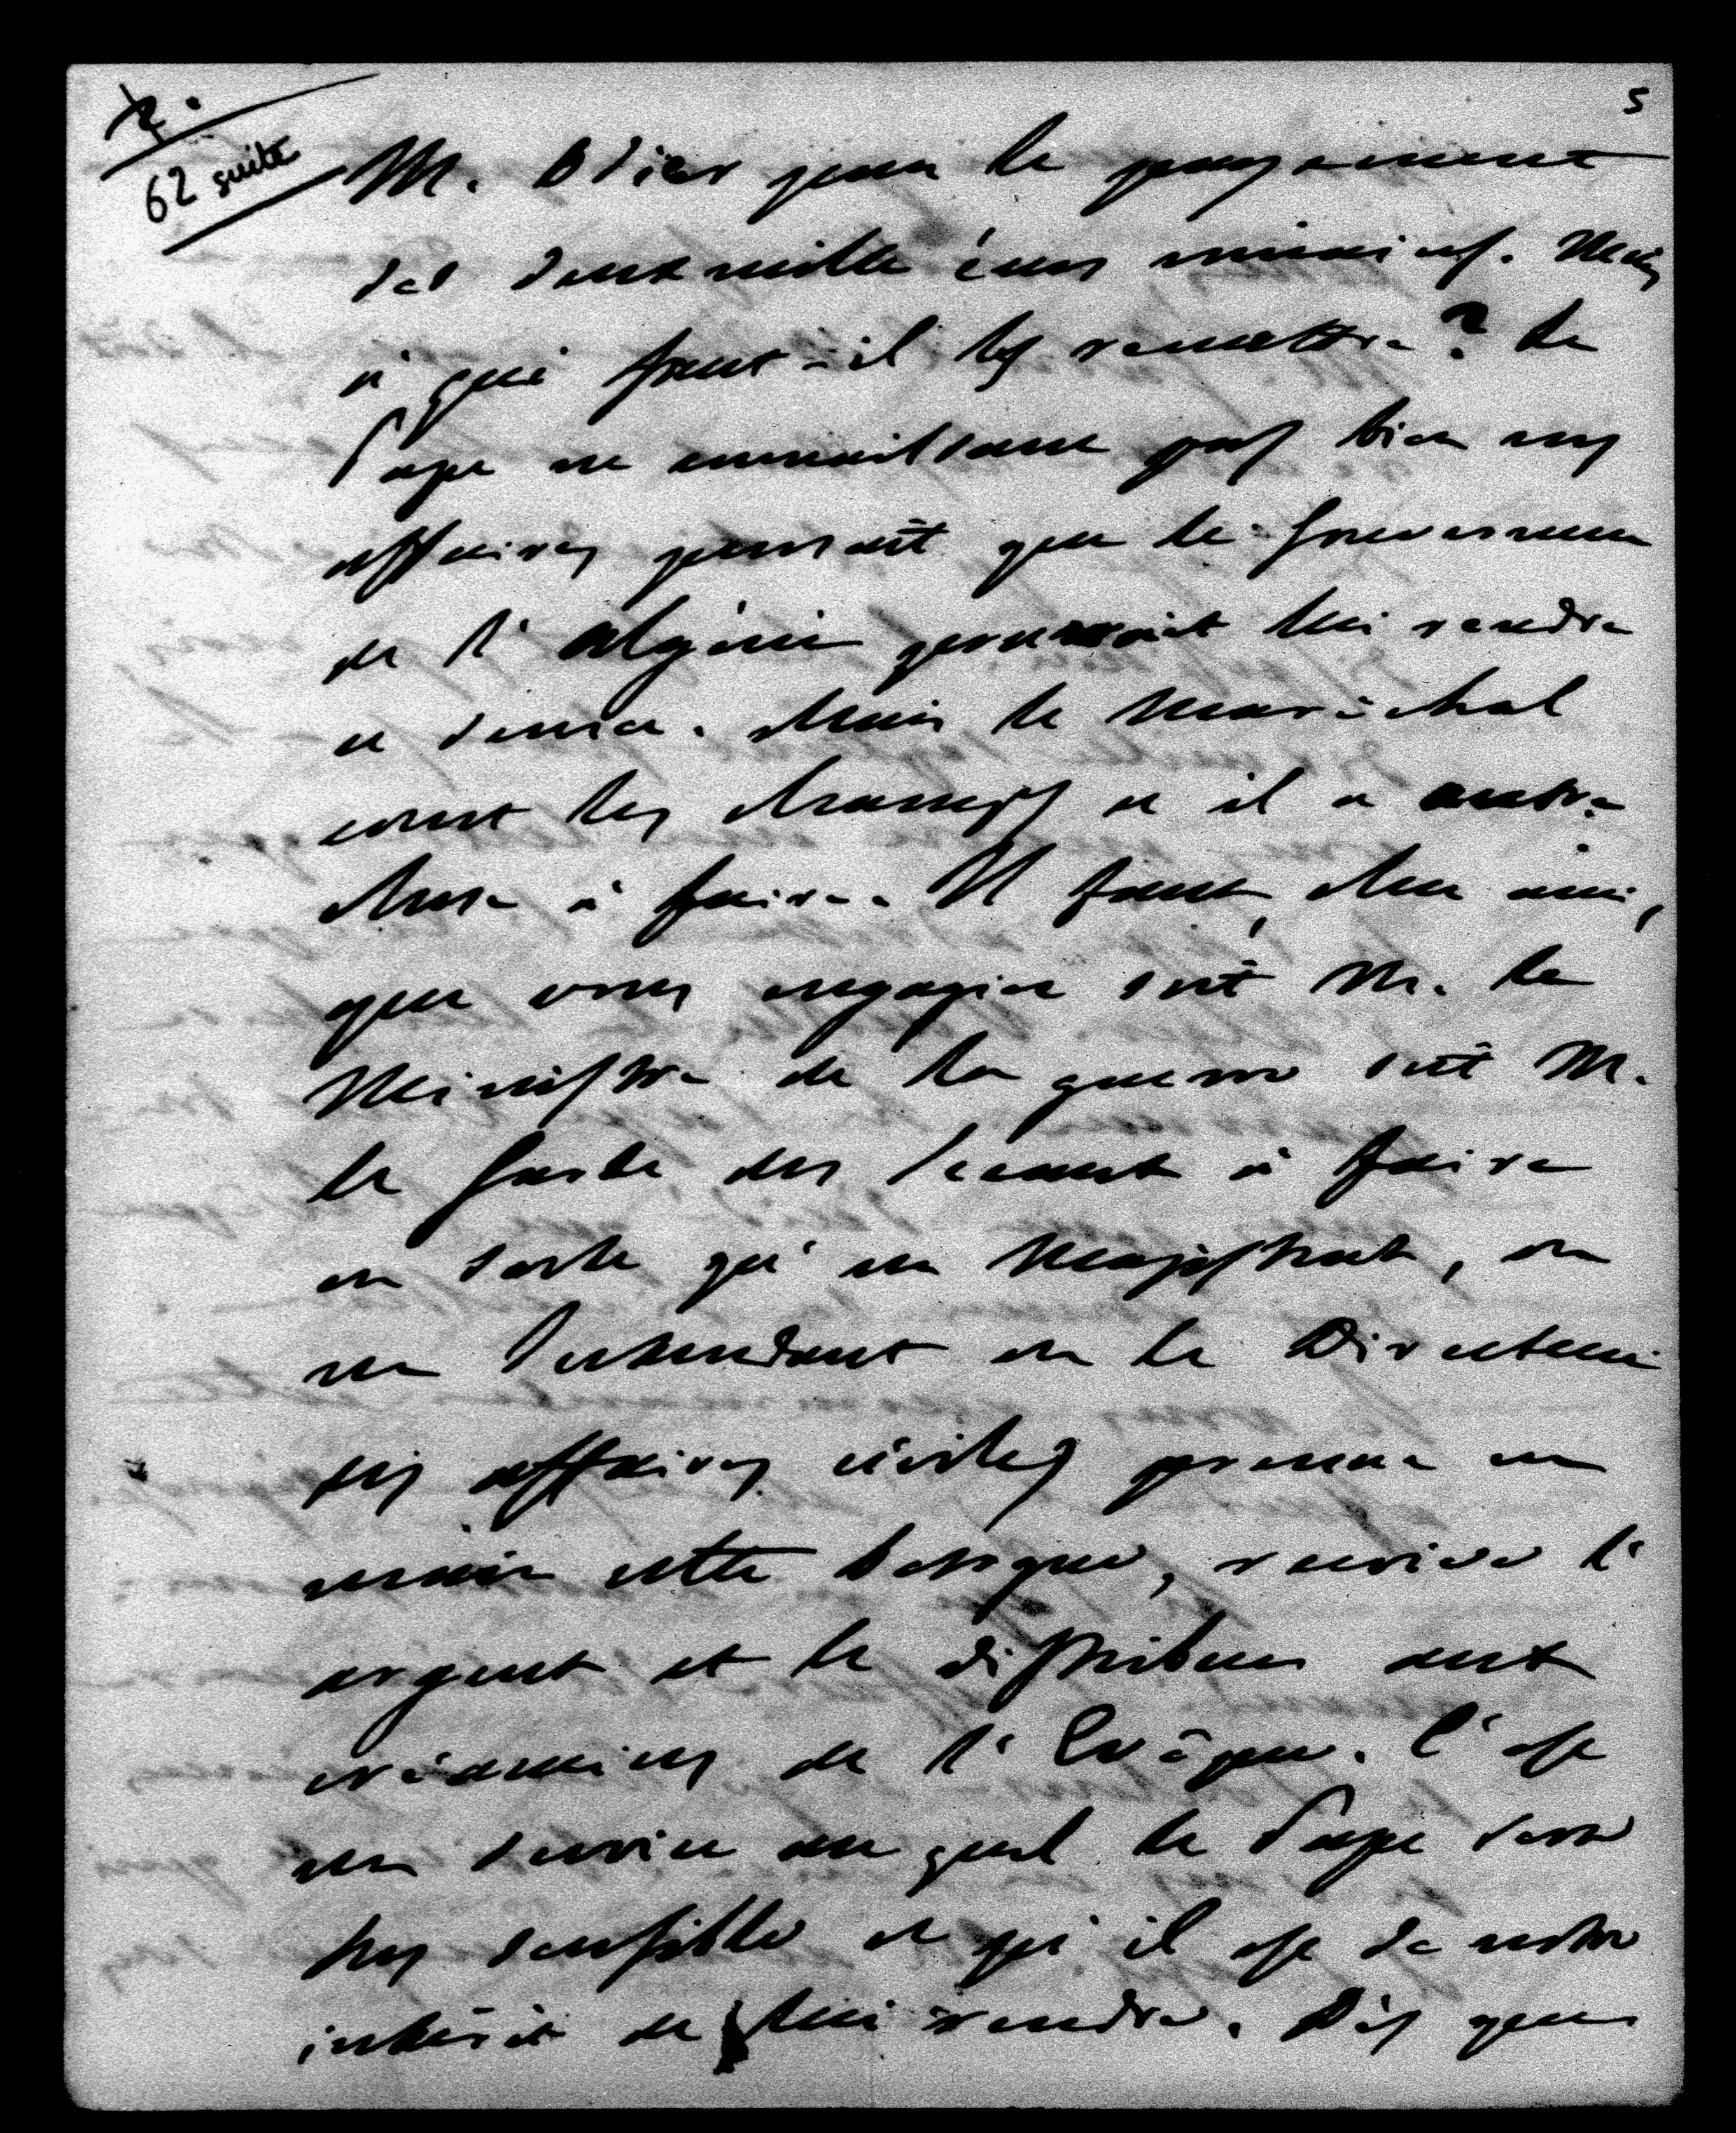 2.
62 suite
5
M. Odier pour le payement
des deux mille écus romains. Mais
à qui faut-il les remettre? Le
Pape ne connaissant pas bien nos
affaires pensait que le Gouverneur
de l'Algérie pourrait lui rendre
ce service. Mais le Maréchal
court les champs et il a autre
chose à faire. Il faut, cher ami,
que vous engagiez soit M. le
Ministre de la guerre soit M.
le Garde des Sceaux à faire
en sorte qu'un Magistrat, ou
un Intendant ou le Directeur
des affaires civiles prenne en
main cette besogne, reçoive l'
argent et le distribue aux
créanciers de l'Evêque. C'est
un service au quel le Pape sera
très sensible et qu'il est de notre
intérêt de lui rendre. Dès que